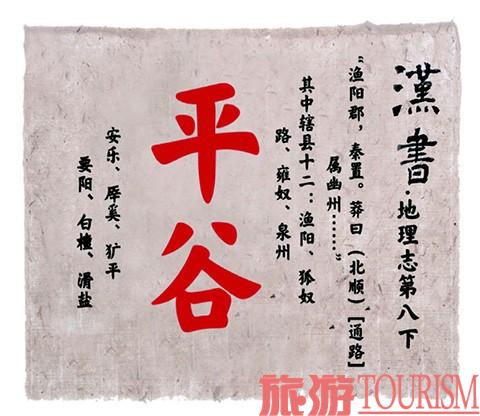 漢書·地理志第八下
“渔阳郡，秦置。莽曰（北顺）[通路]
属幽州……”
其中辖县十二：渔阳、狐奴
路、雍奴、泉州
平谷
安乐、厗奚、犷平
要阳、白檀、滑盐
旅游TOURISM